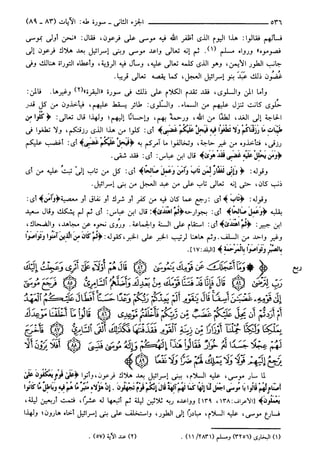 ٥٣٦ الجزء الثاني - سورة طه: الآيات (٨٣ - ٨٩)
فسألهم فقالوا: هذا اليوم الذي أظفر الله فيه موسى على فرعون، فقال: «نحن أولى بموسى
فصوموه» ورواه مسلم (١). ثم إنه تعالى واعد موسى وبني إسرائيل بعد هلاك فرعون إلى
جانب الطور الأيمن، وهو الذي كلمه تعالى عليه، وسأل فيه الرؤية، وأعطاه التوراة هنالك وفي
غضون ذلك عبد بنو إسرائيل العجل، كما يقصه تعالى قريبا.
وأما المن والسلوى، فقد تقدم الكلام على ذلك في سورة «البقرة»(٢) وغيرها. فالمن:
حلوى كانت تنزل عليهم من السماء. والسلوى: طائر يسقط عليهم، فيأخذون من كل قدر
الحاجة إلى الغد، لطفا من الله، ورحمة بهم، وإحسانا إليهم؛ ولهذا قال تعالى: ﴿كُلُوا مِن
طَيِّبَاتِ مَا رَزَقْنَاكُمْ وَلَا تَطْغَوْا فِيهِ فَيَحِلَّ عَلَيْكُمْ غَضَبِي﴾ أي: كلوا من هذا الذي رزقتكم، ولا تطغوا في
رزقي، فتأخذوه من غير حاجة، وتخالفوا ما آمركم به ﴿فَيَحِلَّ عَلَيْكُمْ غَضَبِي﴾ أي: أغضب عليكم
﴿وَمَن يَحْلِلْ عَلَيْهِ غَضَبِي فَقَدْ هَوَىٰ﴾ قال ابن عباس: أي: فقد شقي.
وقوله: ﴿وَإِنِّي لَغَفَّارٌ لِّمَن تَابَ وَآمَنَ وَعَمِلَ صَالِحًا﴾ أي: كل من تاب إليّ تبت عليه من أي
ذنب كان، حتى إنه تعالى تاب على من عبد العجل من بني إسرائيل.
وقوله: ﴿تَابَ﴾ أي: رجع عما كان فيه من كفر أو شرك أو نفاق أو معصية ﴿وَآمَنَ﴾ أي:
بقلبه ﴿وَعَمِلَ صَالِحًا﴾ أي: بجوارحه ﴿ثُمَّ اهْتَدَىٰ﴾: قال ابن عباس: أي ثم لم يشكك وقال سعيد
ابن جبير: ﴿ثُمَّ اهْتَدَىٰ﴾ أي: استقام على السنة والجماعة. ورُوي نحوه عن مجاهد، والضحاك،
وغير واحد من السلف. وثم هاهنا لترتيب الخبر على الخبر، كقوله: ﴿ثُمَّ كَانَ مِنَ الَّذِينَ آمَنُوا وَتَوَاصَوْا
بِالصَّبْرِ وَتَوَاصَوْا بِالْمَرْحَمَةِ﴾ [البلد: ١٧].
﴿وَمَا أَعْجَلَكَ عَن قَوْمِكَ يَا مُوسَىٰ ٨٣ قَالَ هُمْ أُولَاءِ عَلَىٰ أَثَرِي وَعَجِلْتُ إِلَيْكَ
رَبِّ لِتَرْضَىٰ ٨٤ قَالَ فَإِنَّا قَدْ فَتَنَّا قَوْمَكَ مِن بَعْدِكَ وَأَضَلَّهُمُ السَّامِرِيُّ ٨٥ فَرَجَعَ مُوسَىٰ إِلَىٰ
قَوْمِهِ غَضْبَانَ أَسِفًا قَالَ يَا قَوْمِ أَلَمْ يَعِدْكُمْ رَبُّكُمْ وَعْدًا حَسَنًا أَفَطَالَ عَلَيْكُمُ الْعَهْدُ
أَمْ أَرَدتُّمْ أَن يَحِلَّ عَلَيْكُمْ غَضَبٌ مِّن رَّبِّكُمْ فَأَخْلَفْتُم مَّوْعِدِي ٨٦ قَالُوا مَا أَخْلَفْنَا مَوْعِدَكَ
بِمَلْكِنَا وَلَٰكِنَّا حُمِّلْنَا أَوْزَارًا مِّن زِينَةِ الْقَوْمِ فَقَذَفْنَاهَا فَكَذَٰلِكَ أَلْقَى السَّامِرِيُّ ٨٧ فَأَخْرَجَ
لَهُمْ عِجْلًا جَسَدًا لَّهُ خُوَارٌ فَقَالُوا هَٰذَا إِلَٰهُكُمْ وَإِلَٰهُ مُوسَىٰ فَنَسِيَ ٨٨ أَفَلَا يَرَوْنَ أَلَّا
يَرْجِعُ إِلَيْهِمْ قَوْلًا وَلَا يَمْلِكُ لَهُمْ ضَرًّا وَلَا نَفْعًا ٨٩﴾
لما سار موسى، عليه السلام، ببني إسرائيل بعد هلاك فرعون، وأتوا ﴿عَلَىٰ قَوْمٍ يَعْكُفُونَ عَلَىٰ
أَصْنَامٍ لَّهُمْ قَالُوا يَا مُوسَى اجْعَل لَّنَا إِلَٰهًا كَمَا لَهُمْ آلِهَةٌ قَالَ إِنَّكُمْ قَوْمٌ تَجْهَلُونَ. إِنَّ هَٰؤُلَاءِ مُتَبَّرٌ مَّا هُمْ فِيهِ وَبَاطِلٌ مَّا كَانُوا
يَعْمَلُونَ﴾ [الأعراف: ١٣٨، ١٣٩] وواعده ربه ثلاثين ليلة ثم أتبعها له عشرا، فتمت أربعين ليلة،
فسارع موسى، عليه السلام، مبادرا إلى الطور، واستخلف على بني إسرائيل أخاه هارون؛ ولهذا
(١) البخاري (٣٢٧٦) ومسلم (١١/٢٨٣١). (٢) عند الآية (٥٧).
ربع